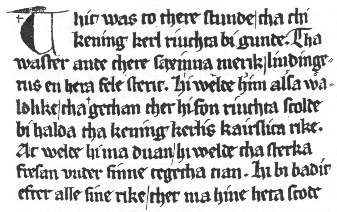 Thit was to there stunde/ tha thi
kening kerl riuchta bi gunde. Tha
waster ande there saxinna merik/ liudinge-
rus en hera fele steric. Hi welde him alsa wa-
ldlike/ tha gethan ther hi fon riuchta scolde
bi halda tha kening kerlis kairslica rike.
Ac welde hi ma duan/ hi welde tha sterka
fresan vnder sinne tegetha tian. Hi bi badit
efter alle sine rike/ thet ma hine hera scode